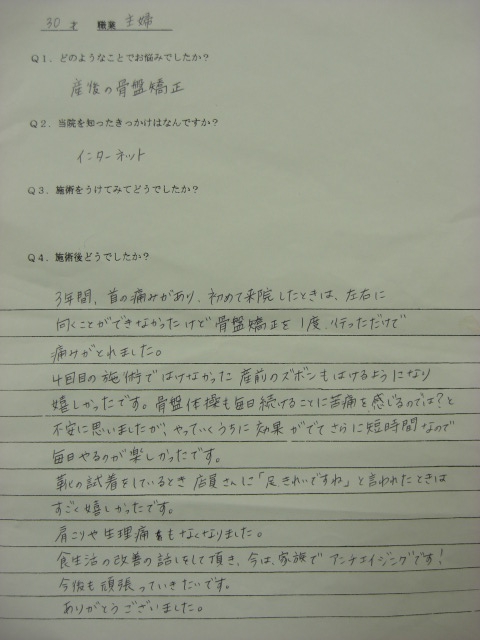 30 才 職業 主婦
Q1. どのようなことでお悩みでしたか？
産後の骨盤矯正
Q2. 当院を知ったきっかけはなんですか？
インターネット
Q3. 施術をうけてみてどうでしたか？
Q4. 施術後どうでしたか？
3年間、首の痛みがあり、初めて来院したときは、左右に
向くことができなかったけど骨盤矯正を1度、行っただけで
痛みがとれました。
4回目の施術ではけなかった産前のズボンもはけるようになり
嬉しかったです。骨盤体操も毎日続けることに苦痛を感じるのでは？と
不安に思いましたが、やっていくうちに効果がでてさらに短時間なので
毎日やるのが楽しかったです。
靴の試着をしているとき店員さんに「足きれいですね」と言われたときは
すごく嬉しかったです。
肩こりや生理痛もなくなりました。
食生活の改善の話しをして頂き、今は、家族でアンチエイジングです！
今後も頑張っていきたいです。
ありがとうございました。